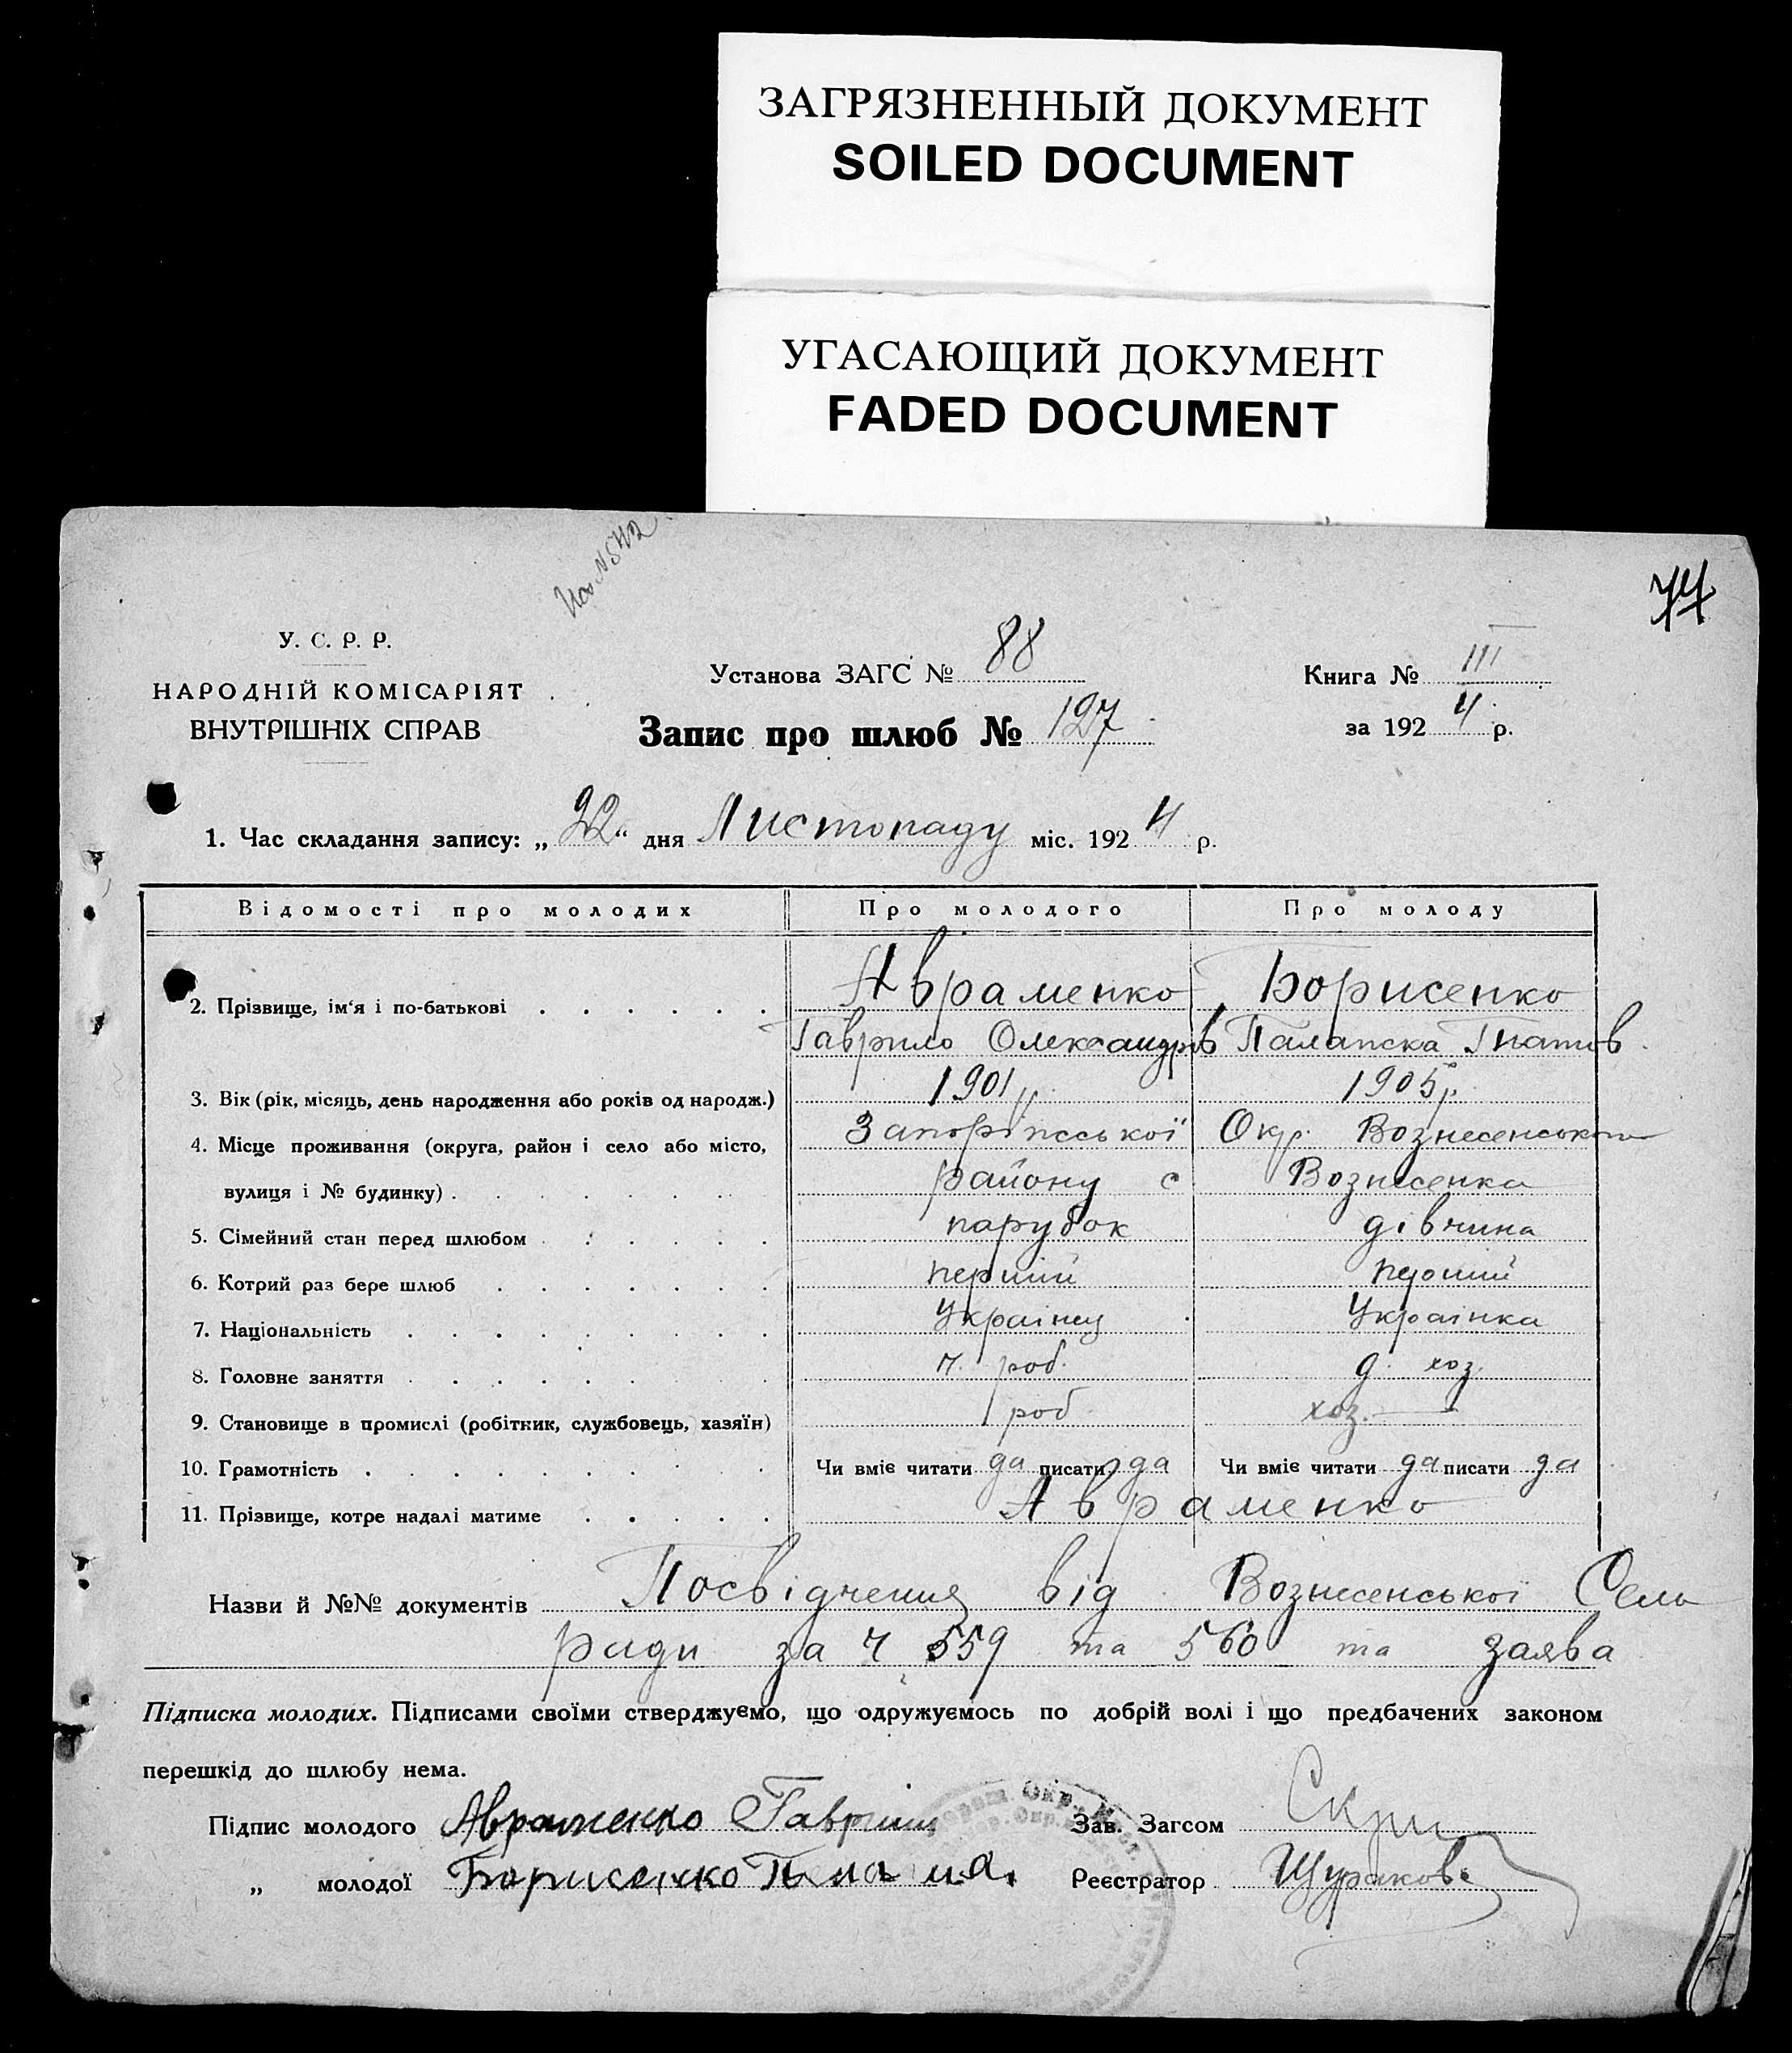 ЗАГРЯЗНЕННЫЙ ДОКУМЕНТ
SOILED DOCUMENT
УГАСАЮЩИЙ ДОКУМЕНТ
FADED DOCUMENT
74
У. С. Р. Р.
НАРОДНІЙ КОМІСАРІЯТ
ВНУТРІШНІХ СПРАВ
Установа ЗАГС № 88
Запис про шлюб № 127
Книга № III
за 192 4 р.
1. Час складання запису: „ 22 “ дня Листопаду міс. 192 4 р.
Відомості про молодих Про молодого Про молоду
2. Прізвище, ім‘я і по-батькові Авраменко Борисенко
Гаврило Олександрів Палапска Гнатов
3. Вік (рік, місяць, день народження або років од народж.) 1901 р. 1905 р.
4. Місце проживання (округа, район і село або місто, Запоріжської Окр. Вознесенського
вулиця і № будинку) району с Вознесенка
5. Сімейний стан перед шлюбом парубок дівчина
6. Котрий раз бере шлюб перший перший
7. Національність Українець Українка
8. Головне заняття ч. роб. д. хоз.
9. Становище в промислі (робітник, службовець, хазяїн) роб хоз.
10. Грамотність Чи вміє читати да писати да Чи вміє читати да писати да
11. Прізвище, котре надалі матиме Авраменко
Назви й №№ документів Посвідчення від Вознесенської Сель
ради за ч 559 та 560 та заява
Підписка молодих. Підписами своїми стверджуємо, що одружуємось по добрій волі і що предбачених законом
перешкід до шлюбу нема.
Підпис молодого Авраменко Гавріил Зав. Загсом
„ молодої Борисенко Реєстратор Щураков